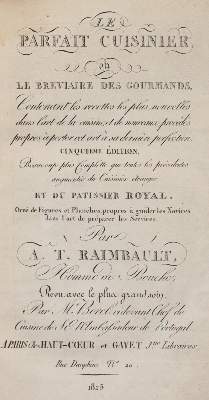 LE
PARFAIT CUISINIER,
ou
LE BREVIAIRE DES GOURMANDS,
Contenant les recettes les plus nouvelles
dans l'art de la cuisine, et de nouveaux procédés
propres à porter cet art à sa dernière perfection.
CINQUIEME ÉDITION,
Beaucoup plus complette que toutes les précédentes
augmentée du Cuisinier étranger
ET DU PATISSIER ROYAL.
Orné de Figures et Planches propres à guider les Novices
dans l'art de préparer les Services.
Par
A. T. RAIMBAULT,
Homme de Bouche,
Revu avec le plus grand soin,
Par Mr. Borel, ci-devant Chef de
Cuisine de S. E. l'Ambassadeur de Portugal.
A PARIS chez HAUT-CŒUR et GAYET Jne. Libraires
Rue Dauphine No. 20.
1825